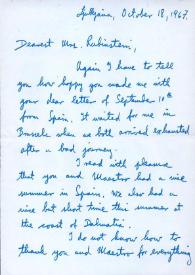 Ljubljana, October 18, 1967
Dearest Mrs. Rubinstein,
Again I have to tell
you how happy you made me with
your dear letter of September 10th
from Spain. It waited for me in
Brussels when we both arrived exhausted
after a bad journey.
I read with pleasure
that you and Maestro had a nice
summer in Spain. We also had a
nice but short time this summer at
the coast of Dalmatia.
I do not know how to
thank you and Maestro for everything